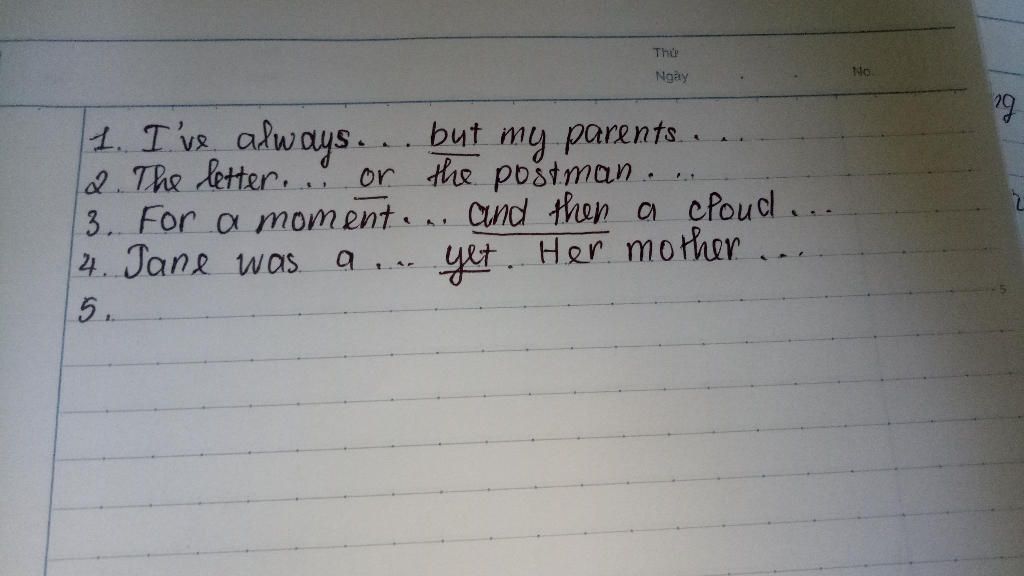 Thứ
Ngày . . No.
1. I've always... but my parents....
2. The letter.... or the postman....
3. For a moment... and then a cloud...
4. Jane was a .... yet. Her mother ...
5.
5
ng